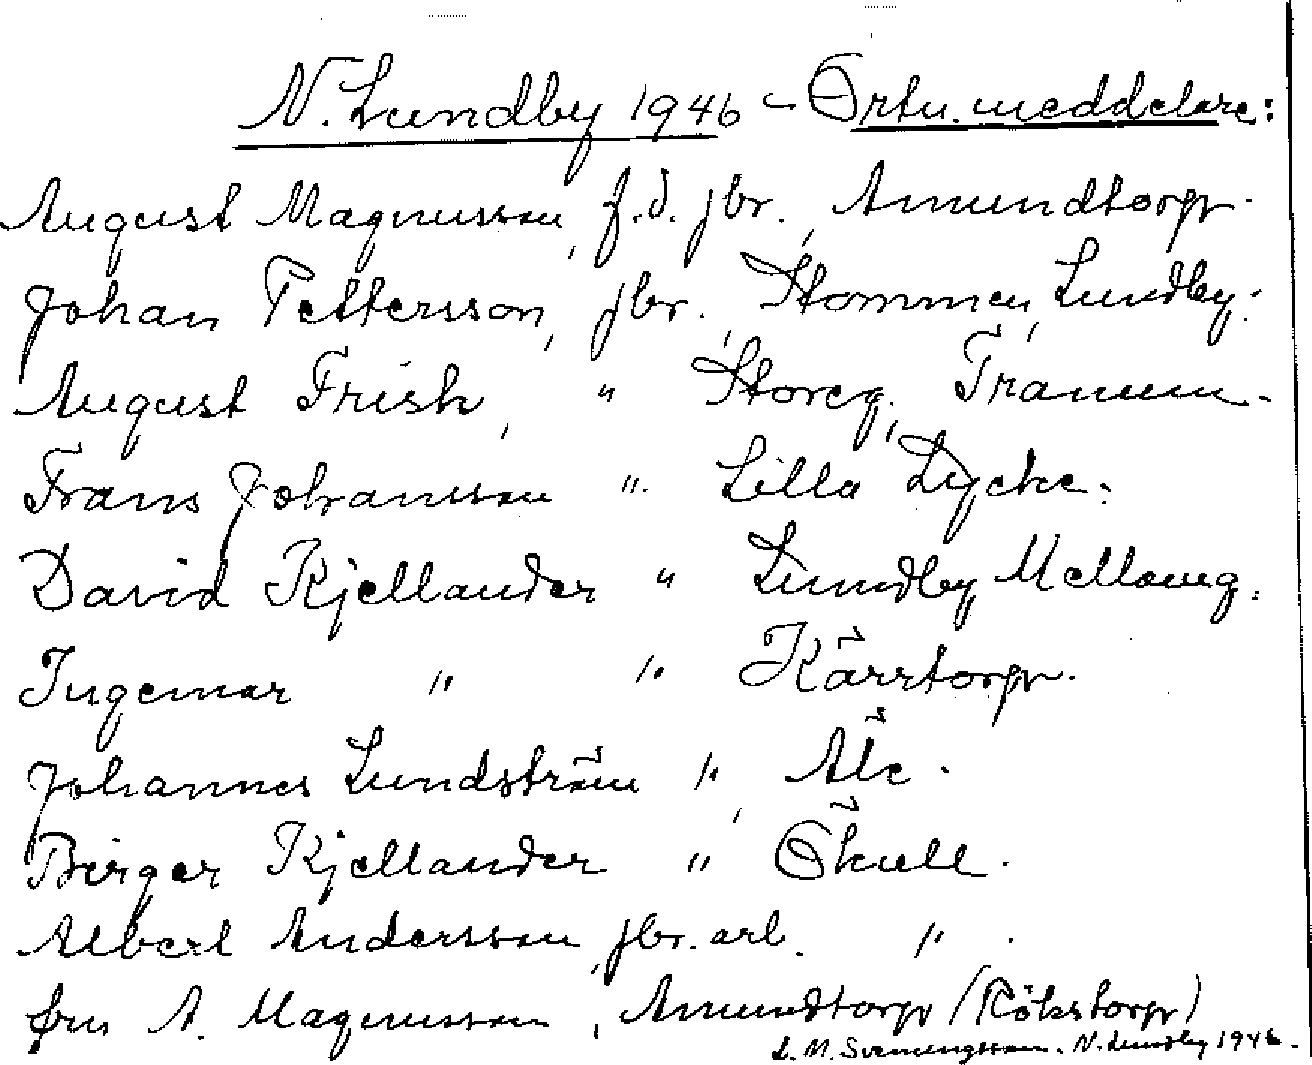 N. Lundby 1946 - Ortn. meddelare:
August Magnusson, f.d. jbr., Amundtorp.
Johan Pettersson, jbr., Stommen, Lundby.
August Frisk, " Storeg., Tranum.
Frans Johansson " Lilla Lycke.
David Kjellander " Lundby Mellomg.
Ingemar " " Kärrtorp.
Johannes Lundström ", Äle.
Birger Kjellander " Ökull.
Albert Andersson, jbr. arb. " .
fru A. Magnusson, Amundtorp (Rökstorp)
L. M. Svenungsson. N. Lundby 1946.